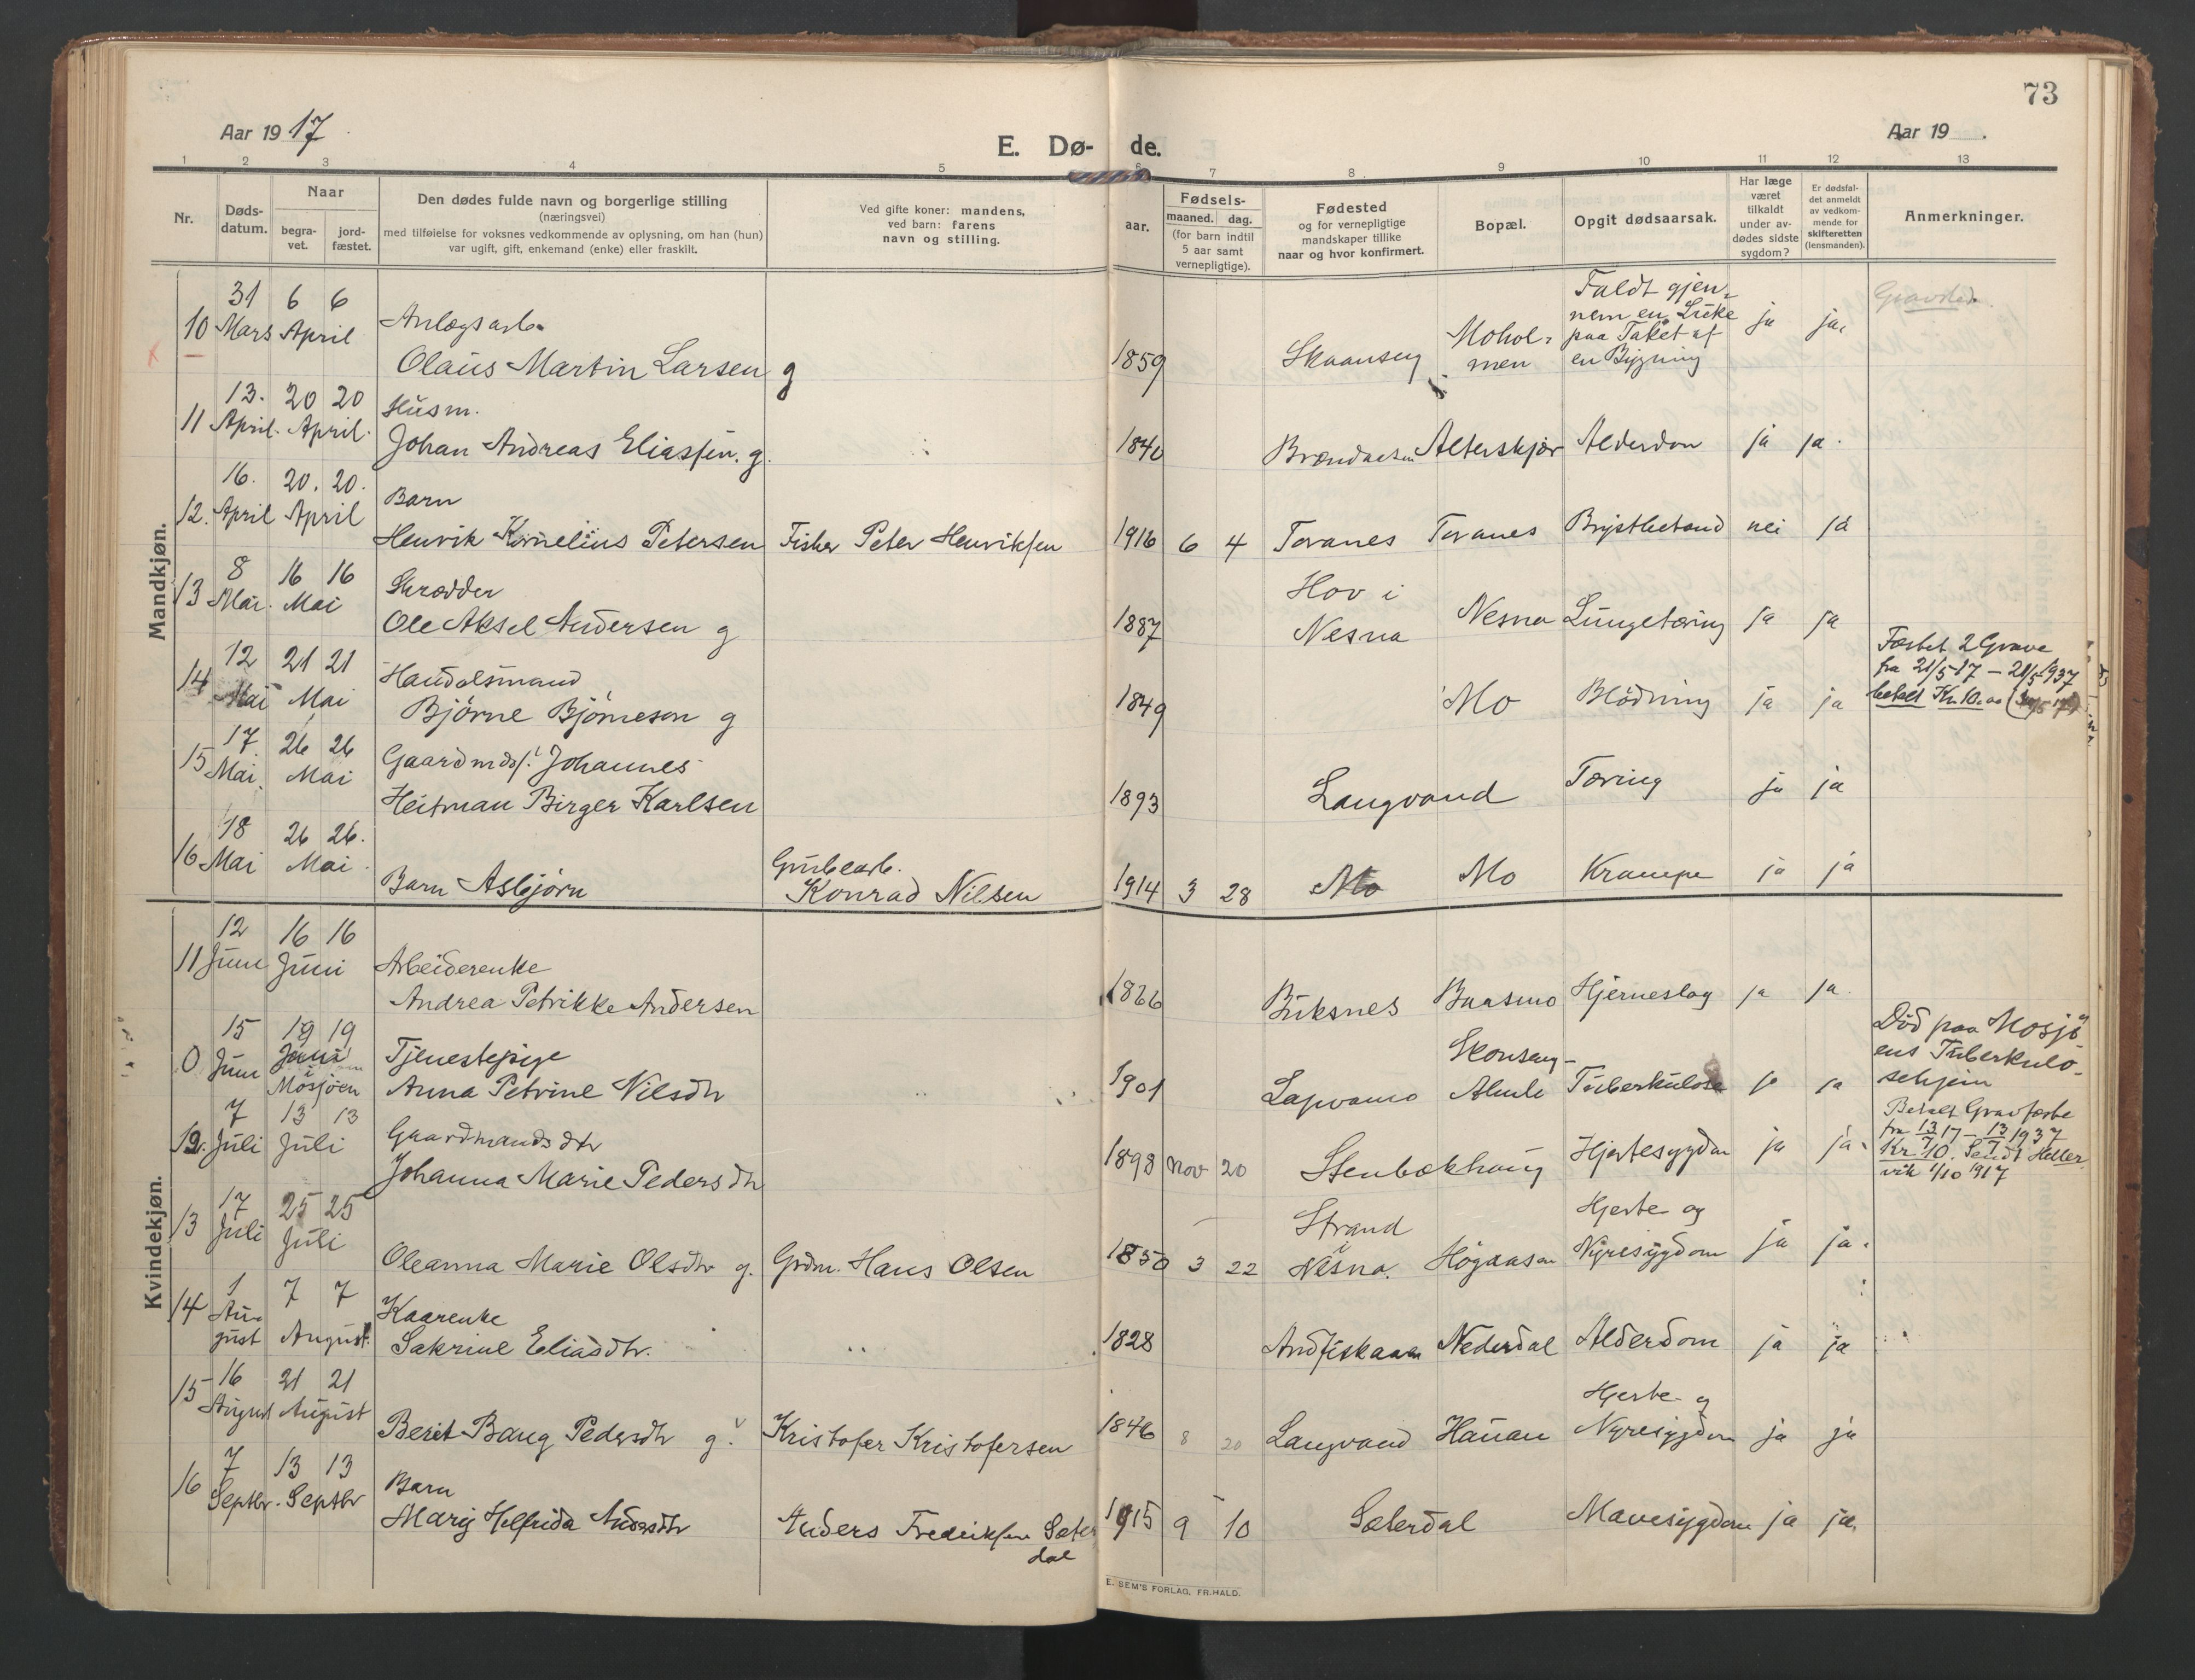 73
Aar 1917
E. Dø-de.
Aar 19 .
1 2 3 4 5 6 7 8 9 10 11 12 13
Nr.
Døds-
datum.
Naar
begra-
vet.
jord-
fæstet.
Den dødes fulde navn og borgerlige stilling
(næringsvei)
med tilføielse for voksnes vedkommende av oplysning, om han (hun)
var ugift, gift, enkemand (enke) eller fraskilt.
Ved gifte koner: mandens,
ved barn: farens
navn og stilling.
aar.
Fødsels-
maaned. dag.
(for barn indtil
5 aar samt
vernepligtige).
Fødested
og for vernepligtige
mandskaper tillike
naar og hvor konfirmert.
Bopæl.
Opgit dødsaarsak.
Har læge
været
tilkaldt
under av-
dødes sidste
sygdom?
Er dødsfal-
det anmeldt
av vedkom-
mende for
skifteretten
(lensmanden).
Anmerkninger.
Mandkjøn.
31 6 6 Faldt gjen-
10 Mars April Anlægsarb. nem en Luke ja ja Gravsted.
Olaus Martin Larsen g 1859 Skaanseng Mohol- paa Taket af
men en Bygning
13. 20 20 Husm.
11 April. April. Johan Andreas Eliassen. g. 1840 Alterskjær Alderdom ja ja.
16. 20. 20. Barn
12. April April Henrik Kornelius Petersen Fisker Peter Henriksen 1916 6 4 Toranes Toranes Brystbetænd nei ja
8 16 16 Skrædder Hov i
13 Mai. Mai Ole Aksel Andersen g 1887 Nesna Nesna Lungetæring ja ja
12 21 21 Handelsmand Fæstet 2 Grave
14 Mai Mai Bjørne Bjørneson g 1849 Mo Blødning ja ja fra 21/5 17 – 21/5 1937
betalt Kr. 10.00
17 26 26 Gaardmds. Johannes
15 Mai. Mai Heitman Birger Karlsen 1893 Langvand Tæring ja ja
18 26 26. Grubearb.
16 Mai Mai. Barn Asbjørn Konrad Nilsen 1914 3 28 Mo Mo Krampe ja ja
Kvindekjøn.
12 16 16
11 Juni Juni Arbeiderenke
Andrea Petrikke Andersen 1866 Buksnes Baasmo Hjerneslag ja ja.
15 19 19 Tjenestepige Skonseng- Død paa Mosjø
0 Juni Juni i Mosjøen Anna Petrine Nilsdtr 1901 Tuberkulose ja ja ens Tuberkulo-
sehjem
7 13 13 Gaardmandsdtr Betalt Gravfæste
12. Juli Juli Johanna Marie Pedersdtr 1898 Nov 20 Stenbækhaug Hjertesygdom ja ja. fra 13/7 17 – 13/7 1937
Kr 10. Sendt Heller
vik 1/10 1917
17 25 25 Strand Hjerte- og
13 Juli Juli Oleanna Marie Olsdtr g. Grdm. Hans Olsen 1850 3 22 i Nesna. Høgaasen Nyresygdom ja ja.
1 7 7 Kaarenke
14 August August. Sakrine Eliasdtr. 1828 Andfiskaaen Nederdal Alderdom ja ja
16 21 21 Hjerte- og
15 August August Berit Bang Pedersdtr g. Kristofer Kristofersen 1846 8 20 Langvand Hauan Nyresygdom ja ja
7 13 13 Barn
16 Septbr. Septbr Marie Helfrida Andersdtr Anders Frederiksen Sæter
dal 1915 9 10 Sæterdal Mavesygdom ja ja.
E. SEM'S FORLAG, FR.HALD.